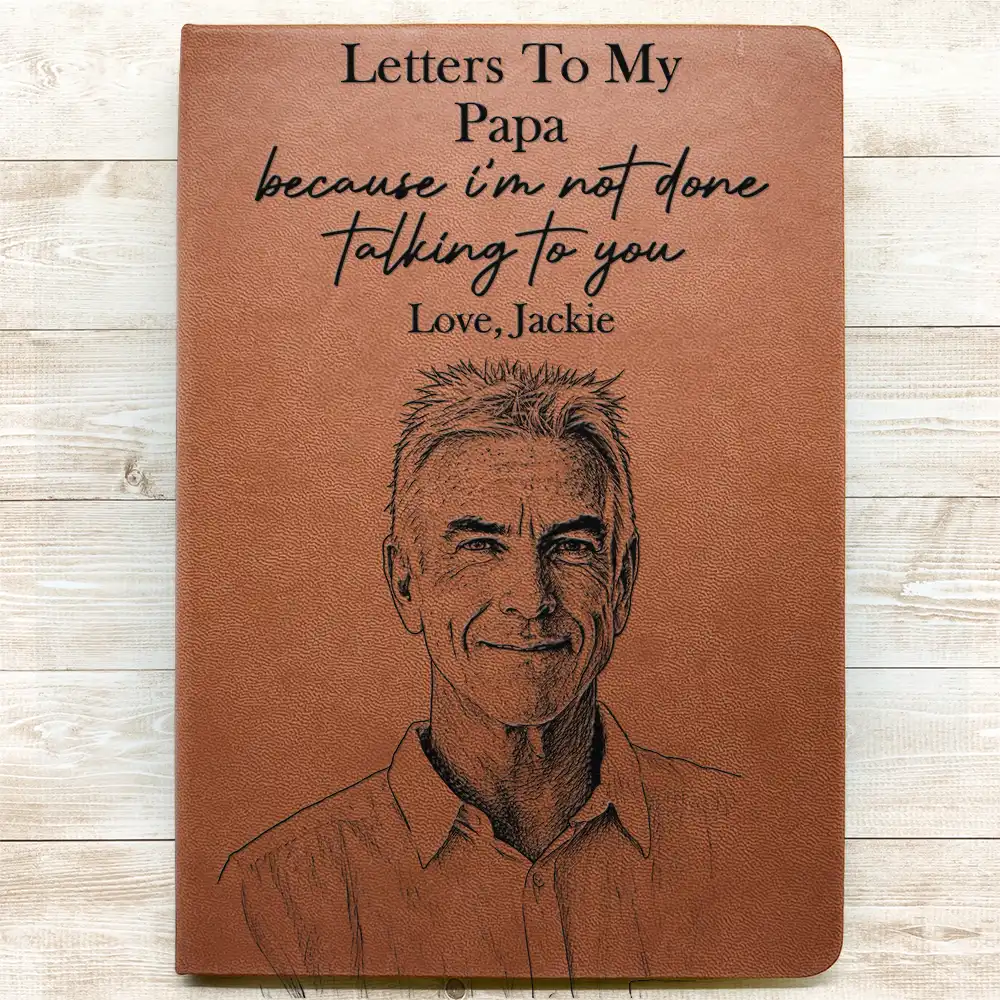 Letters To My
Papa
because i'm not done
talking to you
Love, Jackie